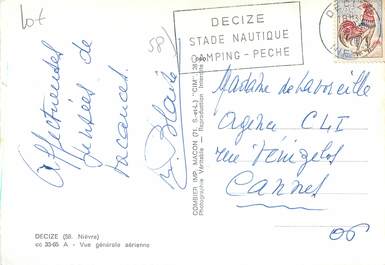 lot
58/
DECIZE
STADE NAUTIQUE
CAMPING - PECHE
DE
Affectueuses
pensées de
vacances.
Madame de Laboreille
Agence CLI
rue Vénizelos
Cannes
06
COMBIER IMP. MACON (71, S-et-L) "CIM"
Photographie Véritable - Reproduction Interdite
DECIZE (58. Nièvre)
cc 33-65 A - Vue générale aérienne